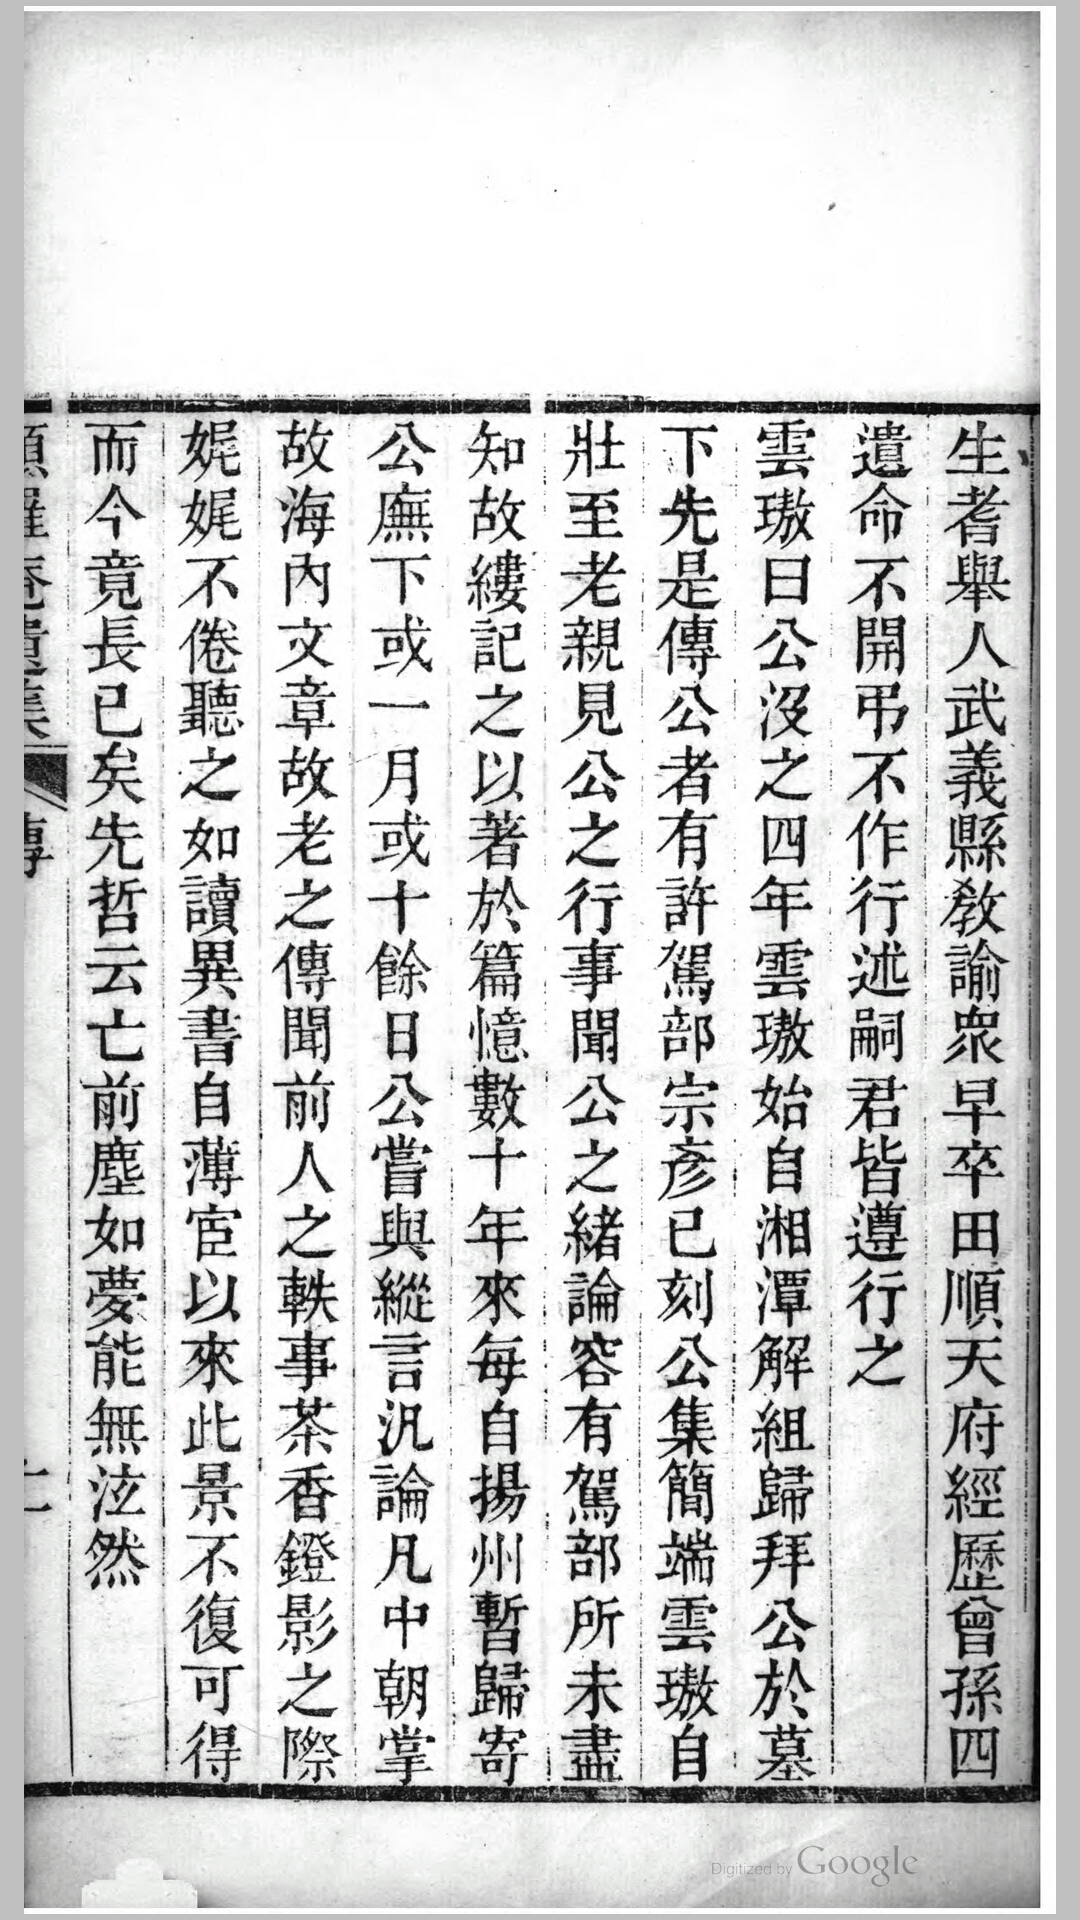 生耆舉人武義縣敎諭衆早卒田順天府經歷曾孫四
遺命不開弔不作行述嗣君皆遵行之
雲璈曰公沒之四年雲璈始自湘潭解組歸拜公於墓
下先是傳公者有許駕部宗彥已刻公集簡端雲璈自
壯至老親見公之行事聞公之緒論容有駕部所未盡
知故縷記之以著於篇憶數十年來每自揚州暫歸寄
公廡下或一月或十餘日公嘗與縱言汎論凡中朝掌
故海內文章故老之傳聞前人之軼事茶香鐙影之際
娓娓不倦聽之如讀異書自薄宦以來此景不復可得
而今竟長已矣先哲云亡前塵如夢能無泫然
遺集
傳
Digitized by Google